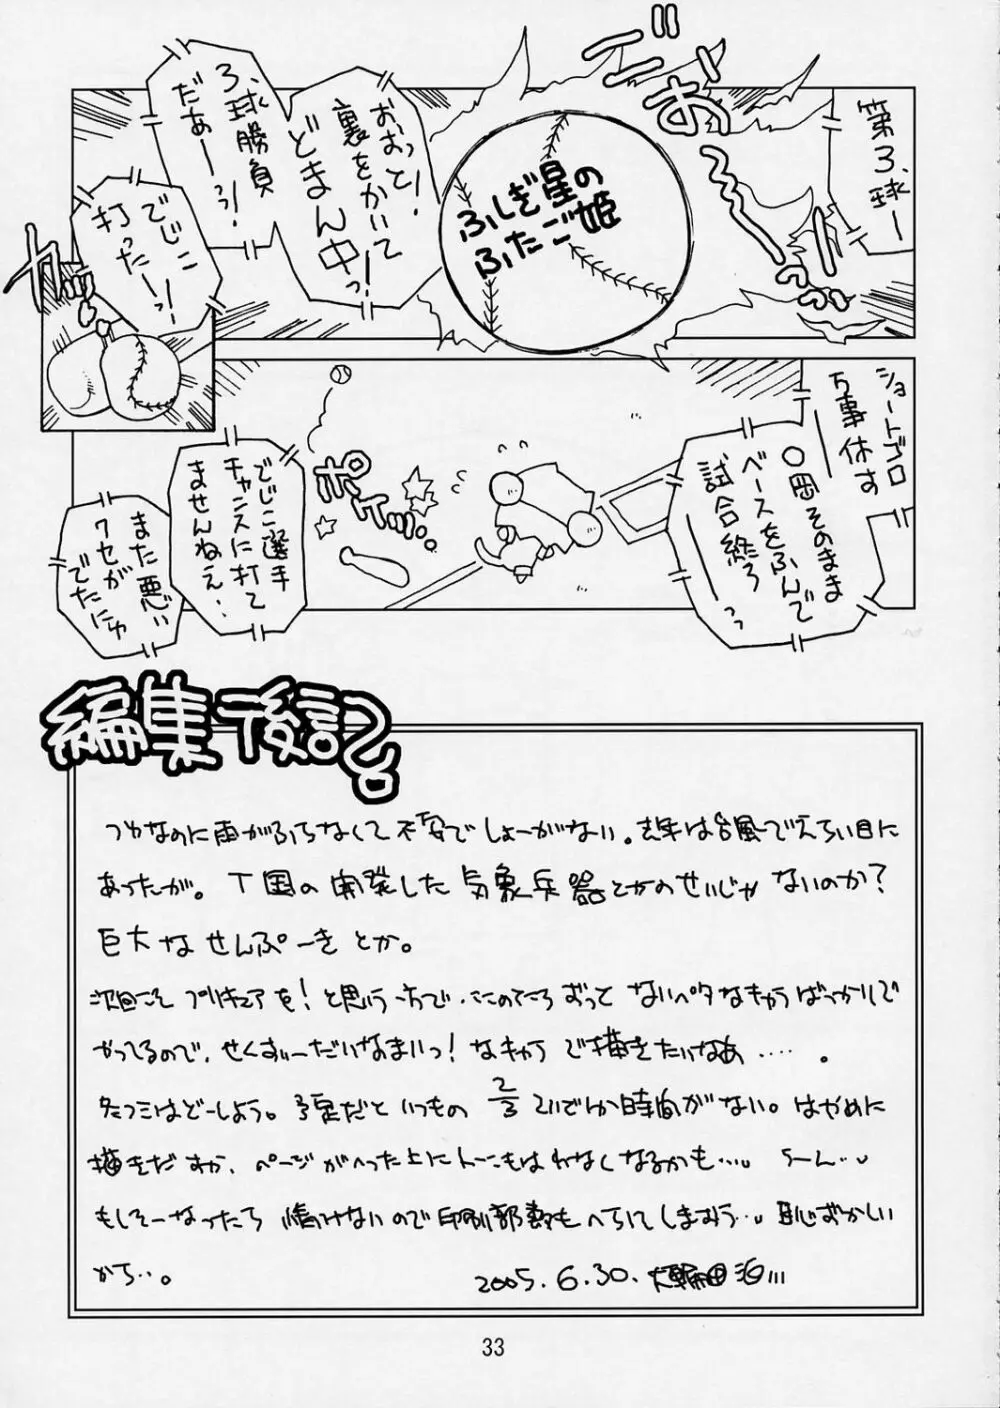 第3、球ー
ごおお〜〜〜っっ
ふしぎ星の
ふたご姫
おおっと!
裏をかいて
どまん中っ!
3、球勝負
だあーっっ!
でじこ
打ったーっ!
カッ
ショートゴロ
万事休す
〇岡そのまま
ベースをふんで
試合終了
ーっっ
ポイッ…
でじこ選手
チャンスに打て
ませんねえ…
また悪い
クセが
でたにゅ
編集後記。
つゆなのに雨がふらなくて不安でしょーがない。去年は台風でえらい目に
あったが。T国の開発した気象兵器とかのせいじゃないのか?
巨大なせんぷーきとか。
次回こそプリキュアを!と思う一方で、ここのところずっとないペタなキャラばっかりで
やってるので、せくすぃーだいなまいっ!なキャラで描きたいなあ……。
冬コミはどーしよう。予定だといつもの2/3ぐらいでしか時間がない。はやめに
描きだすか、ページがへった上にトーンもはれなくなるかも…。うーん…。
もしそーなったら情けないので印刷部数もへらしてしまおう…。恥ずかしい
から…。
2005.6.30.
33